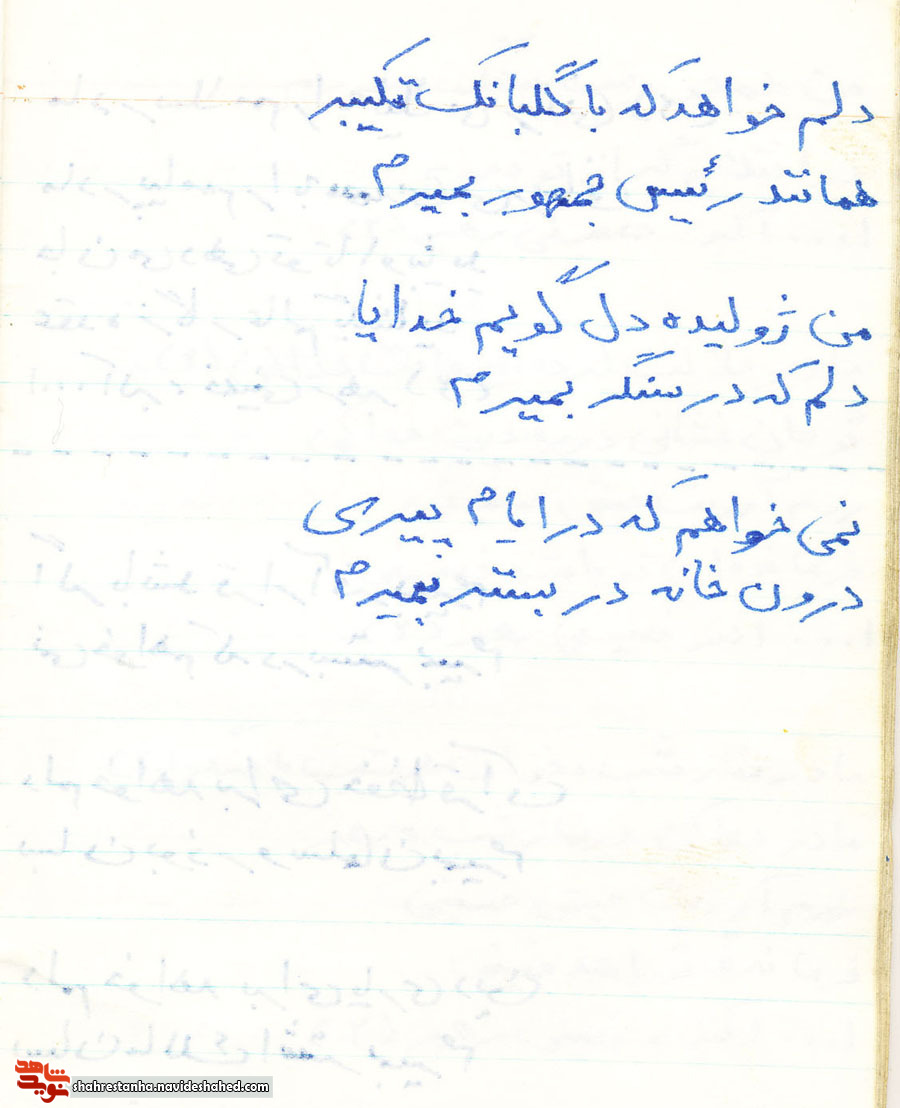 دلم خواهد که با گلبانگ تکبیر
همانند رئیس جمهور بمیرم
من ژولیده دل گویم خدایا
دلم که در سنگر بمیرم
نمی خواهم که در ایام پیری
درون خانه در بستر بمیرم
نوید شاهد
shahrestanha.navideshahed.com